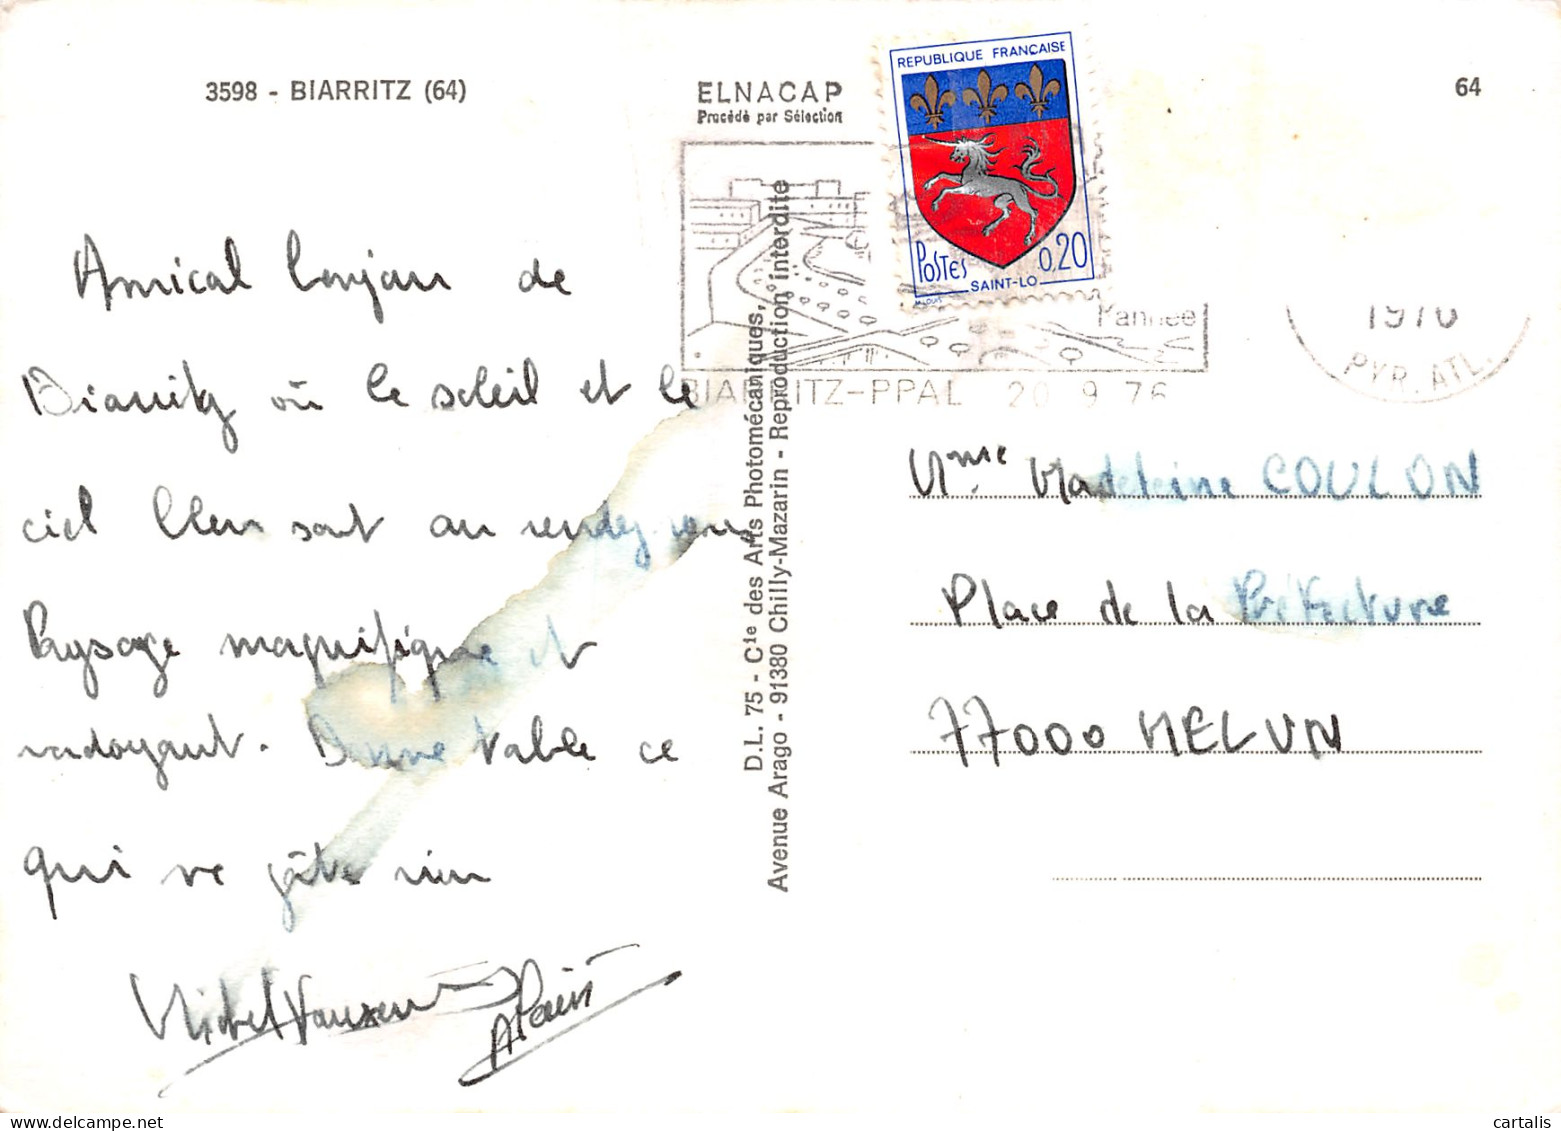 3598 - BIARRITZ (64)
ELNACAP
Procédé par Sélection
64
REPUBLIQUE FRANÇAISE
POSTES 0,20
SAINT-LO
l'année
BIARRITZ-PPAL 20 9 76
1976
PYR. ATL.
Amical bonjour de
Biarritz où le soleil et le
ciel bleu sont au rendez-vous
Paysage magnifique et
verdoyant. Bonne table ce
qui ne gâte rien
Michel
Alain
D.L. 75 - Cie des Arts Photomécaniques,
Avenue Arago - 91380 Chilly-Mazarin - Reproduction interdite
Mme Madeleine COULON
Place de la Préfecture
77000 MELUN
cartalis